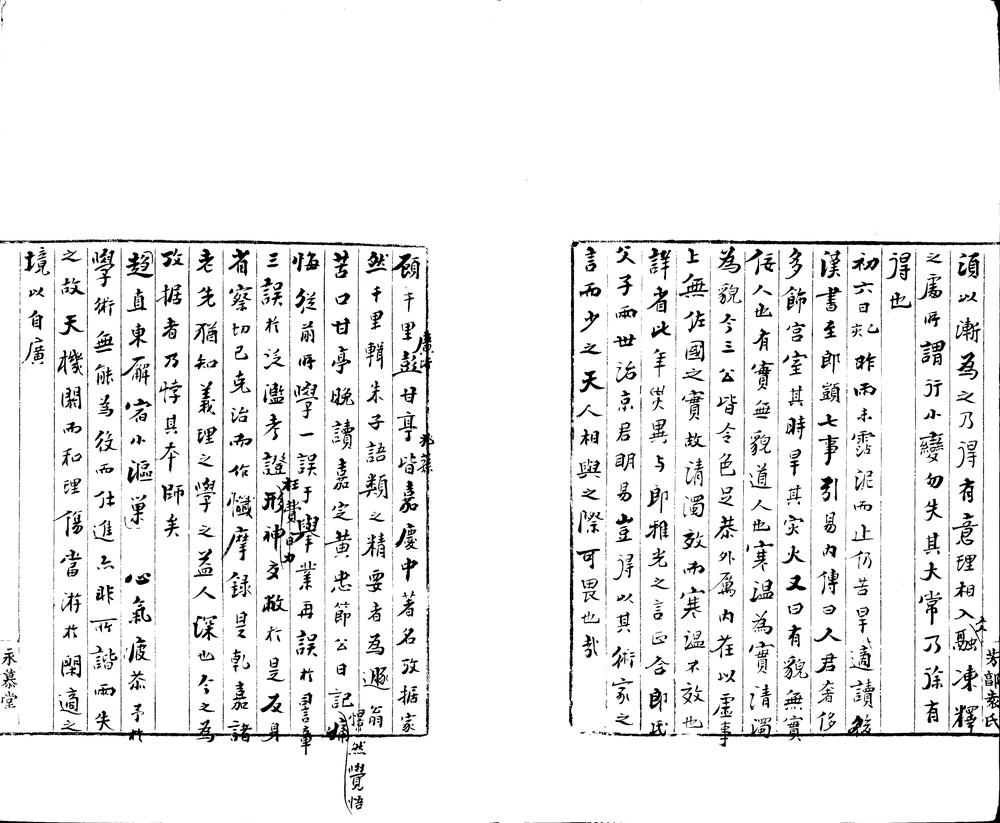 須以漸為之乃得有意理相入融凍釋
之處所謂行小變勿失其大常乃徐有
得也
初六日己亥昨雨未霑泥而止仍苦旱適讀後
漢書至郎顗七事引易內傳曰人君奢侈
多飾宮室其時旱其災火又曰有貌無實
佞人也有實無貌道人也寒温為實清濁
為貌今三公皆令色足恭外厲內荏以虛事
上無佐國之實故清濁效而寒温不效也
詳省此年災異与郎雅光之言正合郎氏
父子兩世治京君明易豈得以其術家之
言而少之天人相與之際可畏也哉
芳郼袁氏
顧千里廣圻彭甘亭兆蓀皆嘉慶中著名攷据家
然千里輯朱子語類之精要者為遯翁
苦口甘亭晚讀嘉定黃忠節公日記憬然覺悟
悔從前所學一誤于舉業再誤於詞章
三誤於泛濫考證枉費日力形神交敝於是反身
省察切己克治而作懺摩錄是乾嘉諸
老先猶知義理之學之益人深也今之為
攷据者乃悖其本師矣
趙直東屛宿小漚巢 心氣疲苶予於
學術無能為役而仕進亦非所諧兩失
之故天機閼而和理傷當游於閑適之
境以自廣
永慕堂